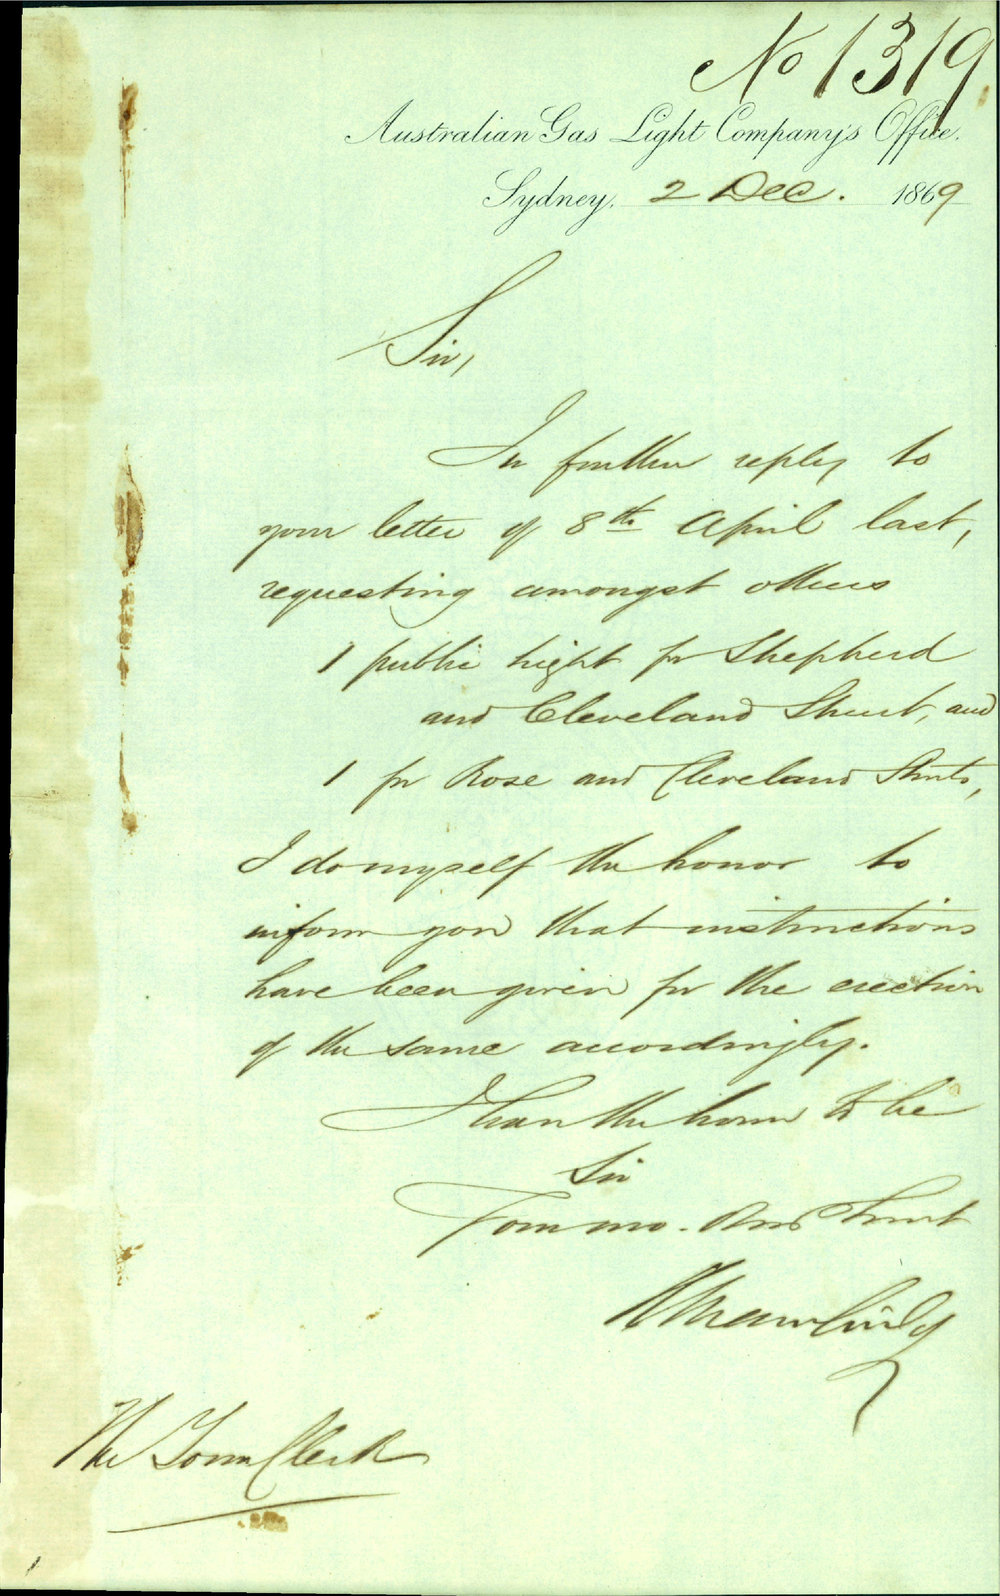 No 1319.
Australian Gas Light Company's Office.
Sydney, 2 Dec. 1869
Sir,
In further reply to
your letter of 8th April last,
requesting amongst others
1 public light for Shepherd
and Cleveland Street, and
1 for Rose and Cleveland Streets,
I do myself the honor to
inform you that instructions
have been given for the erection
of the same accordingly.
I have the honor to be
Sir
Your mo. Obd Servt
The Town Clerk